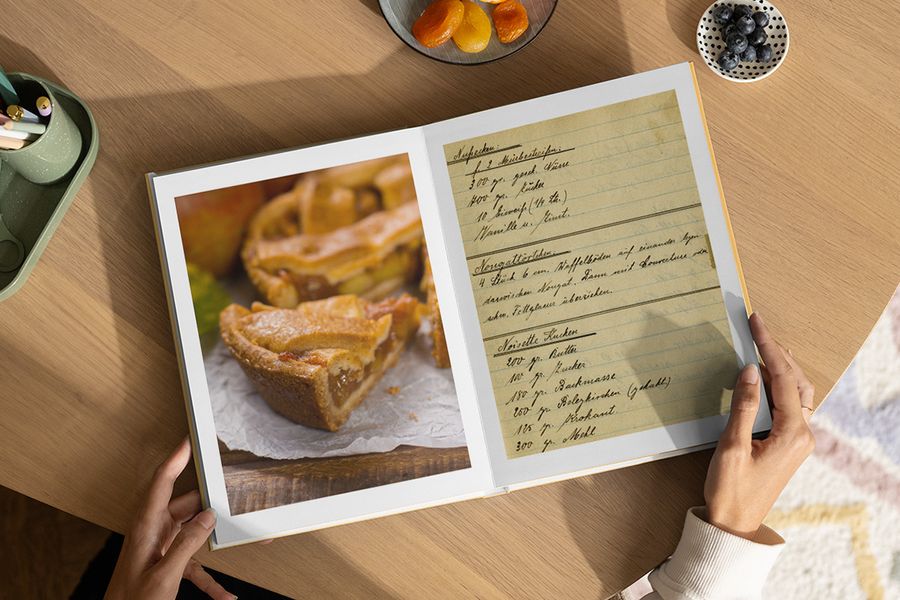 Nußecken:
f. 2 Mürbestreifen:
300 gr. gesch. Nüsse
400 gr. Zucker
10 Eiweiß (1/4 Ltr.)
Vanille u. Zimt.
Nougattörtchen
4 Stück 6 cm. Waffelböden auf einander
dazwischen Nougat. Dann mit Couvertüre oder
schw. Fettglasur überziehen.
Noisette Kuchen
200 gr. Butter
100 gr. Zucker
150 gr. Backmasse
250 gr. Belegkirschen (gehackt)
125 gr. Krokant
300 gr. Mehl